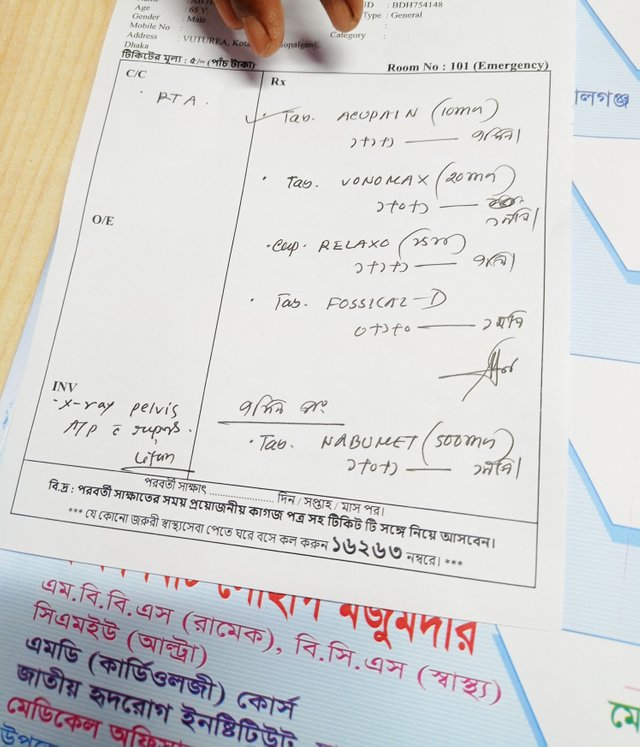 Age : 65 Y
ID : BDH754148
Gender : Male
Type : General
Mobile No :
Category :
Address : VUTUREA, Kota
opalganj,
Dhaka
টিকিটের মূল্য : ৫/= (পাঁচ টাকা)
Room No : 101 (Emergency)
C/C
RTA.
O/E
INV
- X-ray pelvis
A/P c̄
Rx
Tab. ACUPAIN (10mg)
১+১+১ —
Tab. VONOMAX (20mg)
১+০+১ —
Cap. RELAXO
১+১+১ —
Tab. FOSSICAL-D
০+১+০ — ১ মাস
Tab. NABUMET (500mg)
১+০+১ —
পরবর্তী সাক্ষাৎ ........................ দিন / সপ্তাহ / মাস পর।
বি.দ্র : পরবর্তী সাক্ষাতের সময় প্রয়োজনীয় কাগজ পত্র সহ টিকিট টি সঙ্গে নিয়ে আসবেন।
*** যে কোনো জরুরী স্বাস্থ্যসেবা পেতে ঘরে বসে কল করুন ১৬২৬৩ নম্বরে। ***
মজুমদার
এম.বি.বি.এস (রামেক), বি.সি.এস (স্বাস্থ্য)
সিএমইউ (আল্ট্রা)
এমডি (কার্ডিওলজী) কোর্স
জাতীয় হৃদরোগ ইনষ্টিটিউট
মেডিকেল অফিসা
উপ
লগঞ্জ
মে